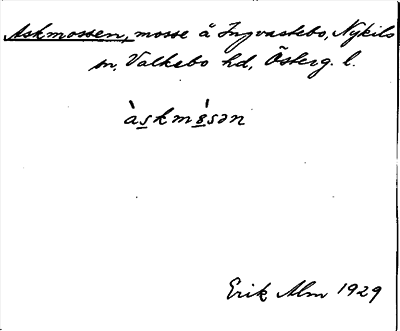 Askmossen, mosse å Ingvastebo, Nykils
sn, Valkebo hd, Österg. l.
àskmósən
Erik Alm 1929